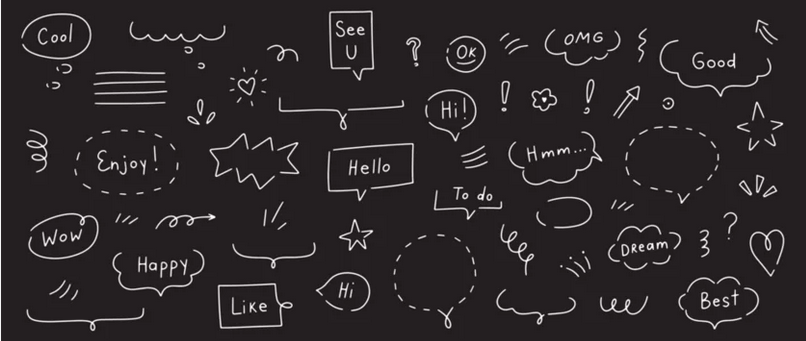 Cool
See
U
?
OK
OMG
Good
Hi!
!
!
Enjoy!
Hello
Hmm...
To do
Wow
Happy
?
Dream
Like
Hi
Best